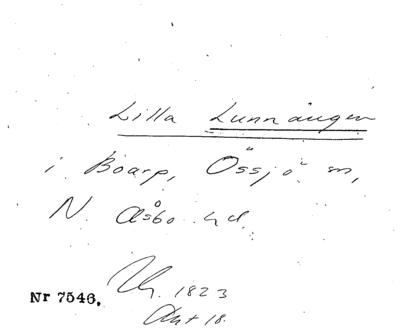 Lilla Lunnängen
i Boarp, Össjö sn,
N. Åsbo hd.
Nr 7546. 1823
Akt 18.